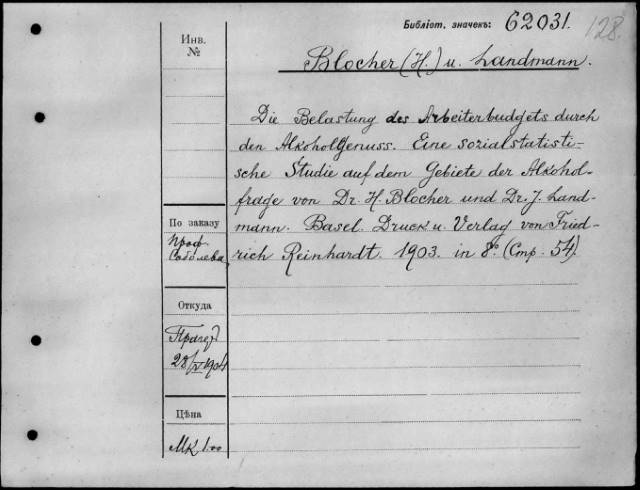 Библіот. значекъ: 62031.
128.
Инв.
№
Blocher (H.) u. Landmann.
Die Belastung des Arbeiterbudgets durch
den Alkoholgenuss. Eine sozialstatisti-
sche Studie auf dem Gebiete der Alkohol-
frage von Dr. H. Blocher und Dr. J. Land-
mann. Basel. Druck u. Verlag von Fried-
rich Reinhardt. 1903. in 8°. (Стр. 54).
По заказу
Проф.
Соболева
Откуда
28/IV 1904
Цѣна
Мк 1.00